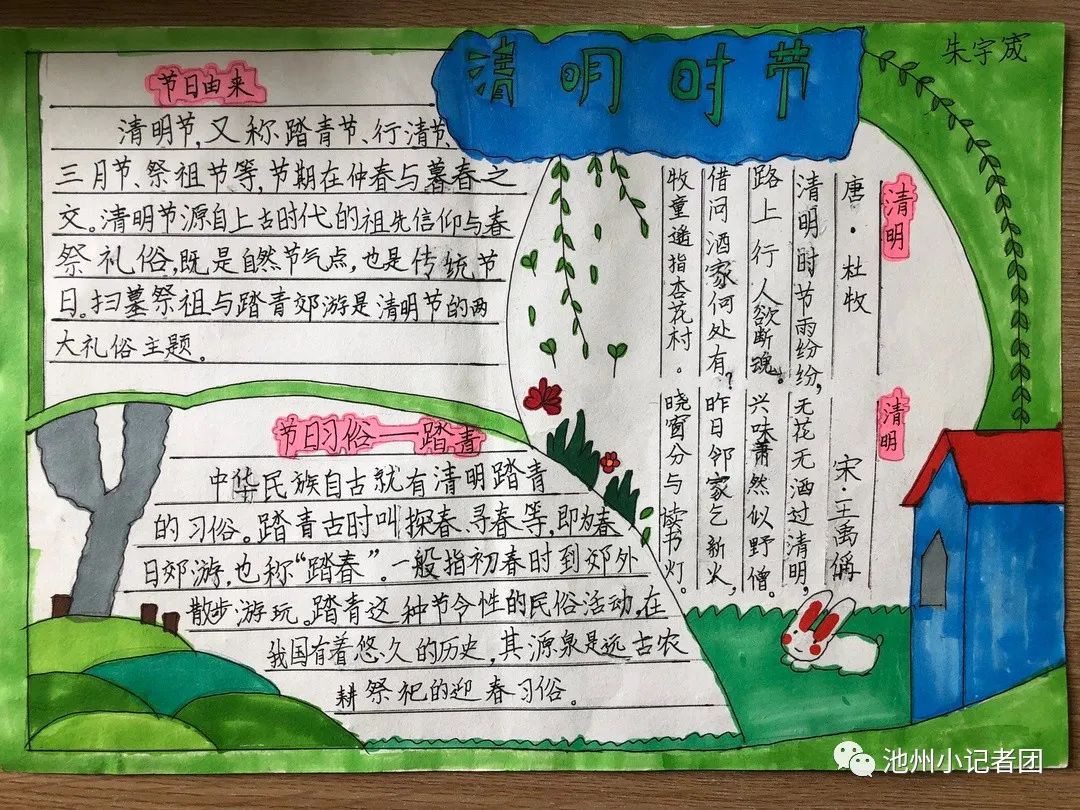 清明时节
朱宇宬
节日由来
清明节,又称踏青节、行清节、
三月节、祭祖节等,节期在仲春与暮春之
交。清明节源自上古时代的祖先信仰与春
祭礼俗,既是自然节气点,也是传统节
日。扫墓祭祖与踏青郊游是清明节的两
大礼俗主题。
清明
唐·杜牧
清明时节雨纷纷,
路上行人欲断魂。
借问酒家何处有?
牧童遥指杏花村。
清明
宋·王禹偁
无花无酒过清明,
兴味萧然似野僧。
昨日邻家乞新火,
晓窗分与读书灯。
节日习俗——踏青
中华民族自古就有清明踏青
的习俗。踏青古时叫探春、寻春等,即为春
日郊游,也称“踏春”。一般指初春时到郊外
散步游玩。踏青这种节令性的民俗活动,在
我国有着悠久的历史,其源泉是远古农
耕祭祀的迎春习俗。
池州小记者团